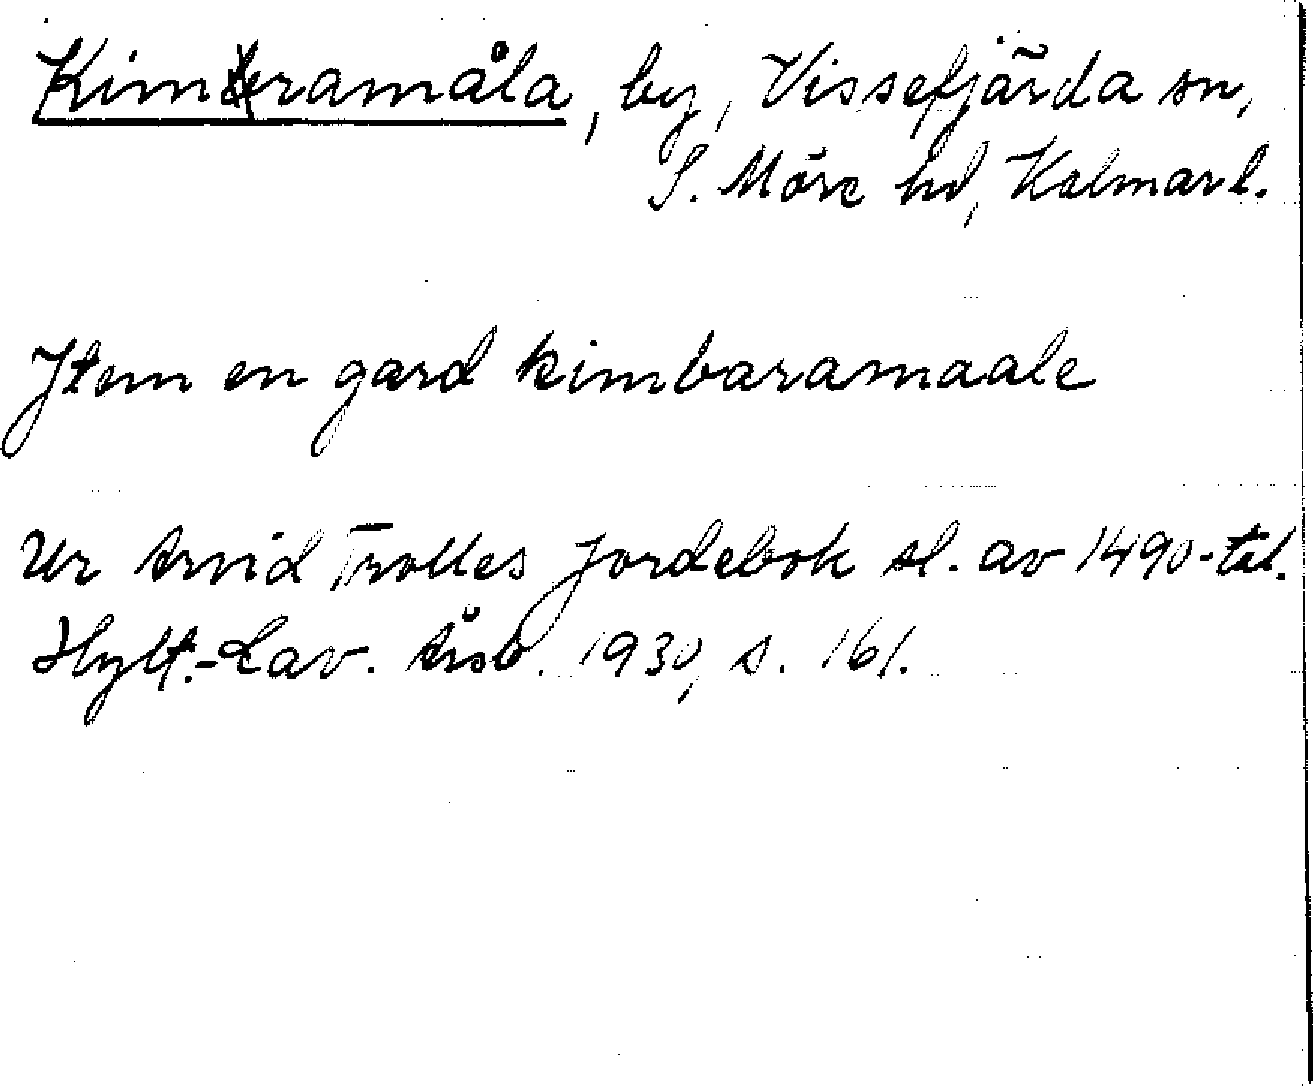 Kimramåla, by, Vissefjärda sn,
S. Möre hd, Kalmar l.
Item en gard kimbaramaale
Ur Arvid Trolles Jordebok sl. av 1490-tal.
Hylt.-Cav. Årsb. 1930, s. 161.